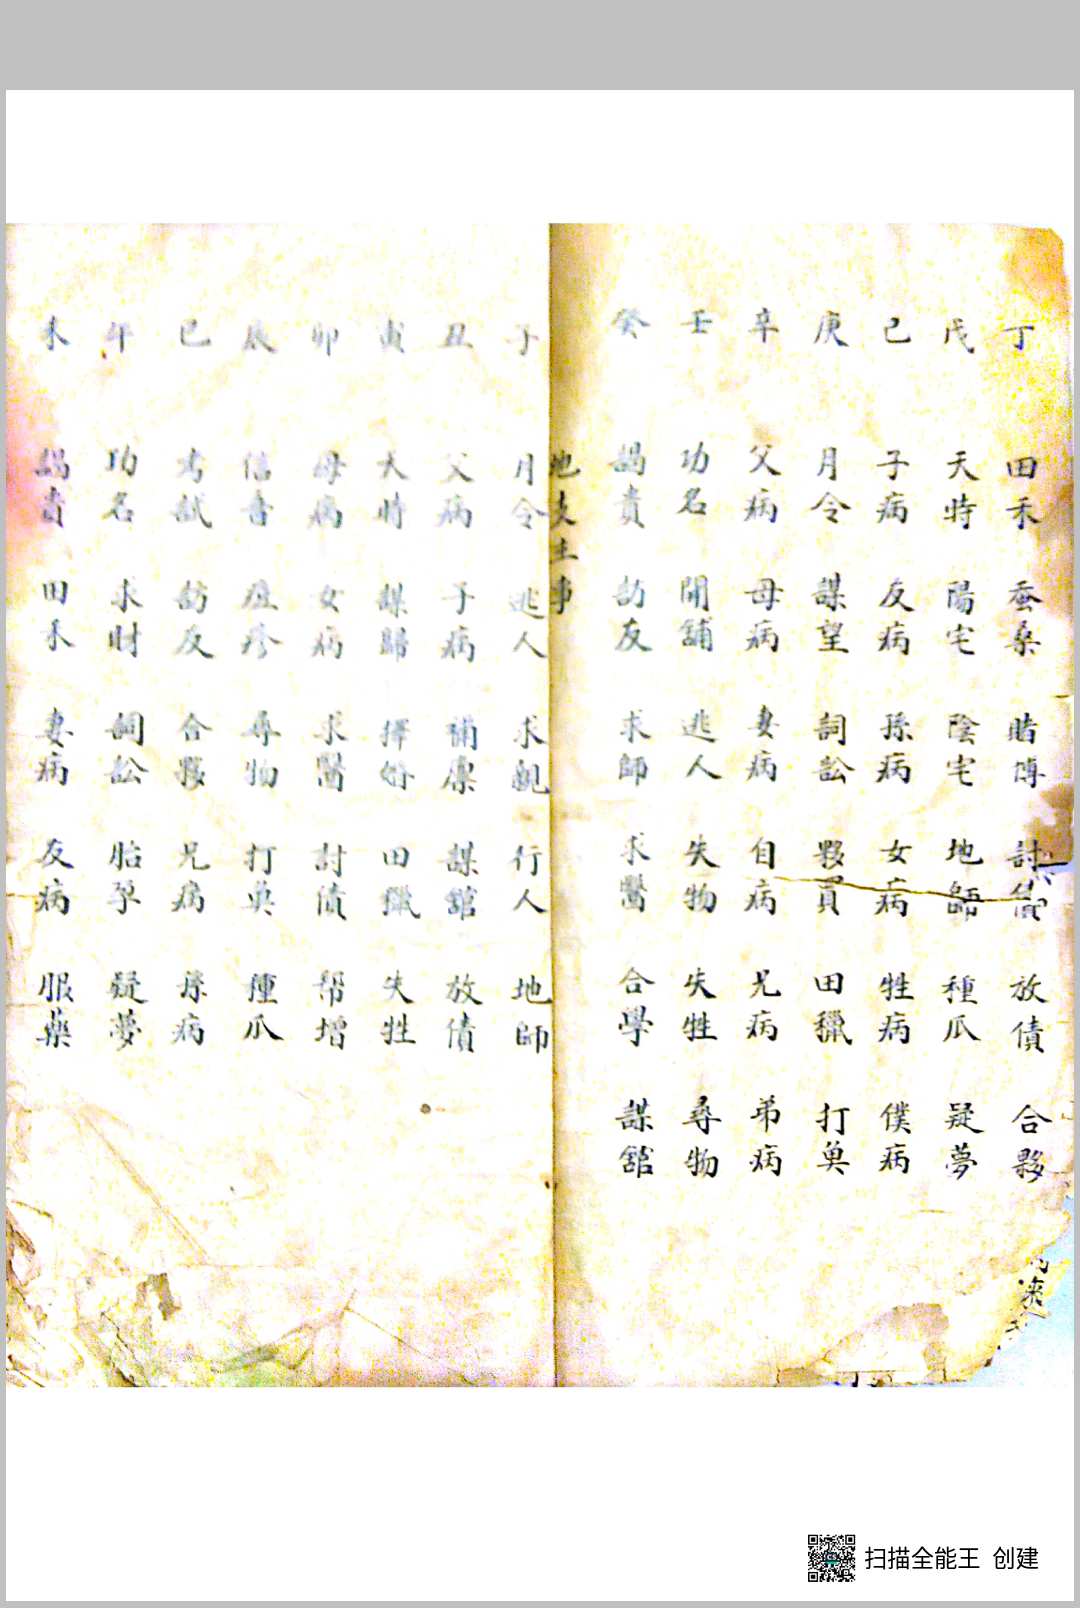 丁 田禾 蚕桑 賭博 討債 放債 合夥
戊 天時 陽宅 陰宅 地師 種瓜 疑夢
己 子病 友病 孫病 女病 牲病 僕病
庚 月令 謀望 詞訟 夥買 田獵 打奐
辛 父病 母病 妻病 自病 兄病 弟病
壬 功名 開舖 逃人 失物 失牲 尋物
癸 謁貴 訪友 求師 求醫 合學 謀舘
地支主事
子 月令 逃人 求親 行人 地師
丑 父病 子病 補廩 謀舘 放債
寅 天時 謀歸 擇婚 田獵 失牲
卯 母病 女病 求醫 討債 帮增
辰 信音 痘疹 尋物 打奐 種瓜
巳 考試 訪友 合夥 兄病 孫病
午 功名 求財 詞訟 胎孕 疑夢
未 謁貴 田禾 妻病 友病 服藥
扫描全能王 创建